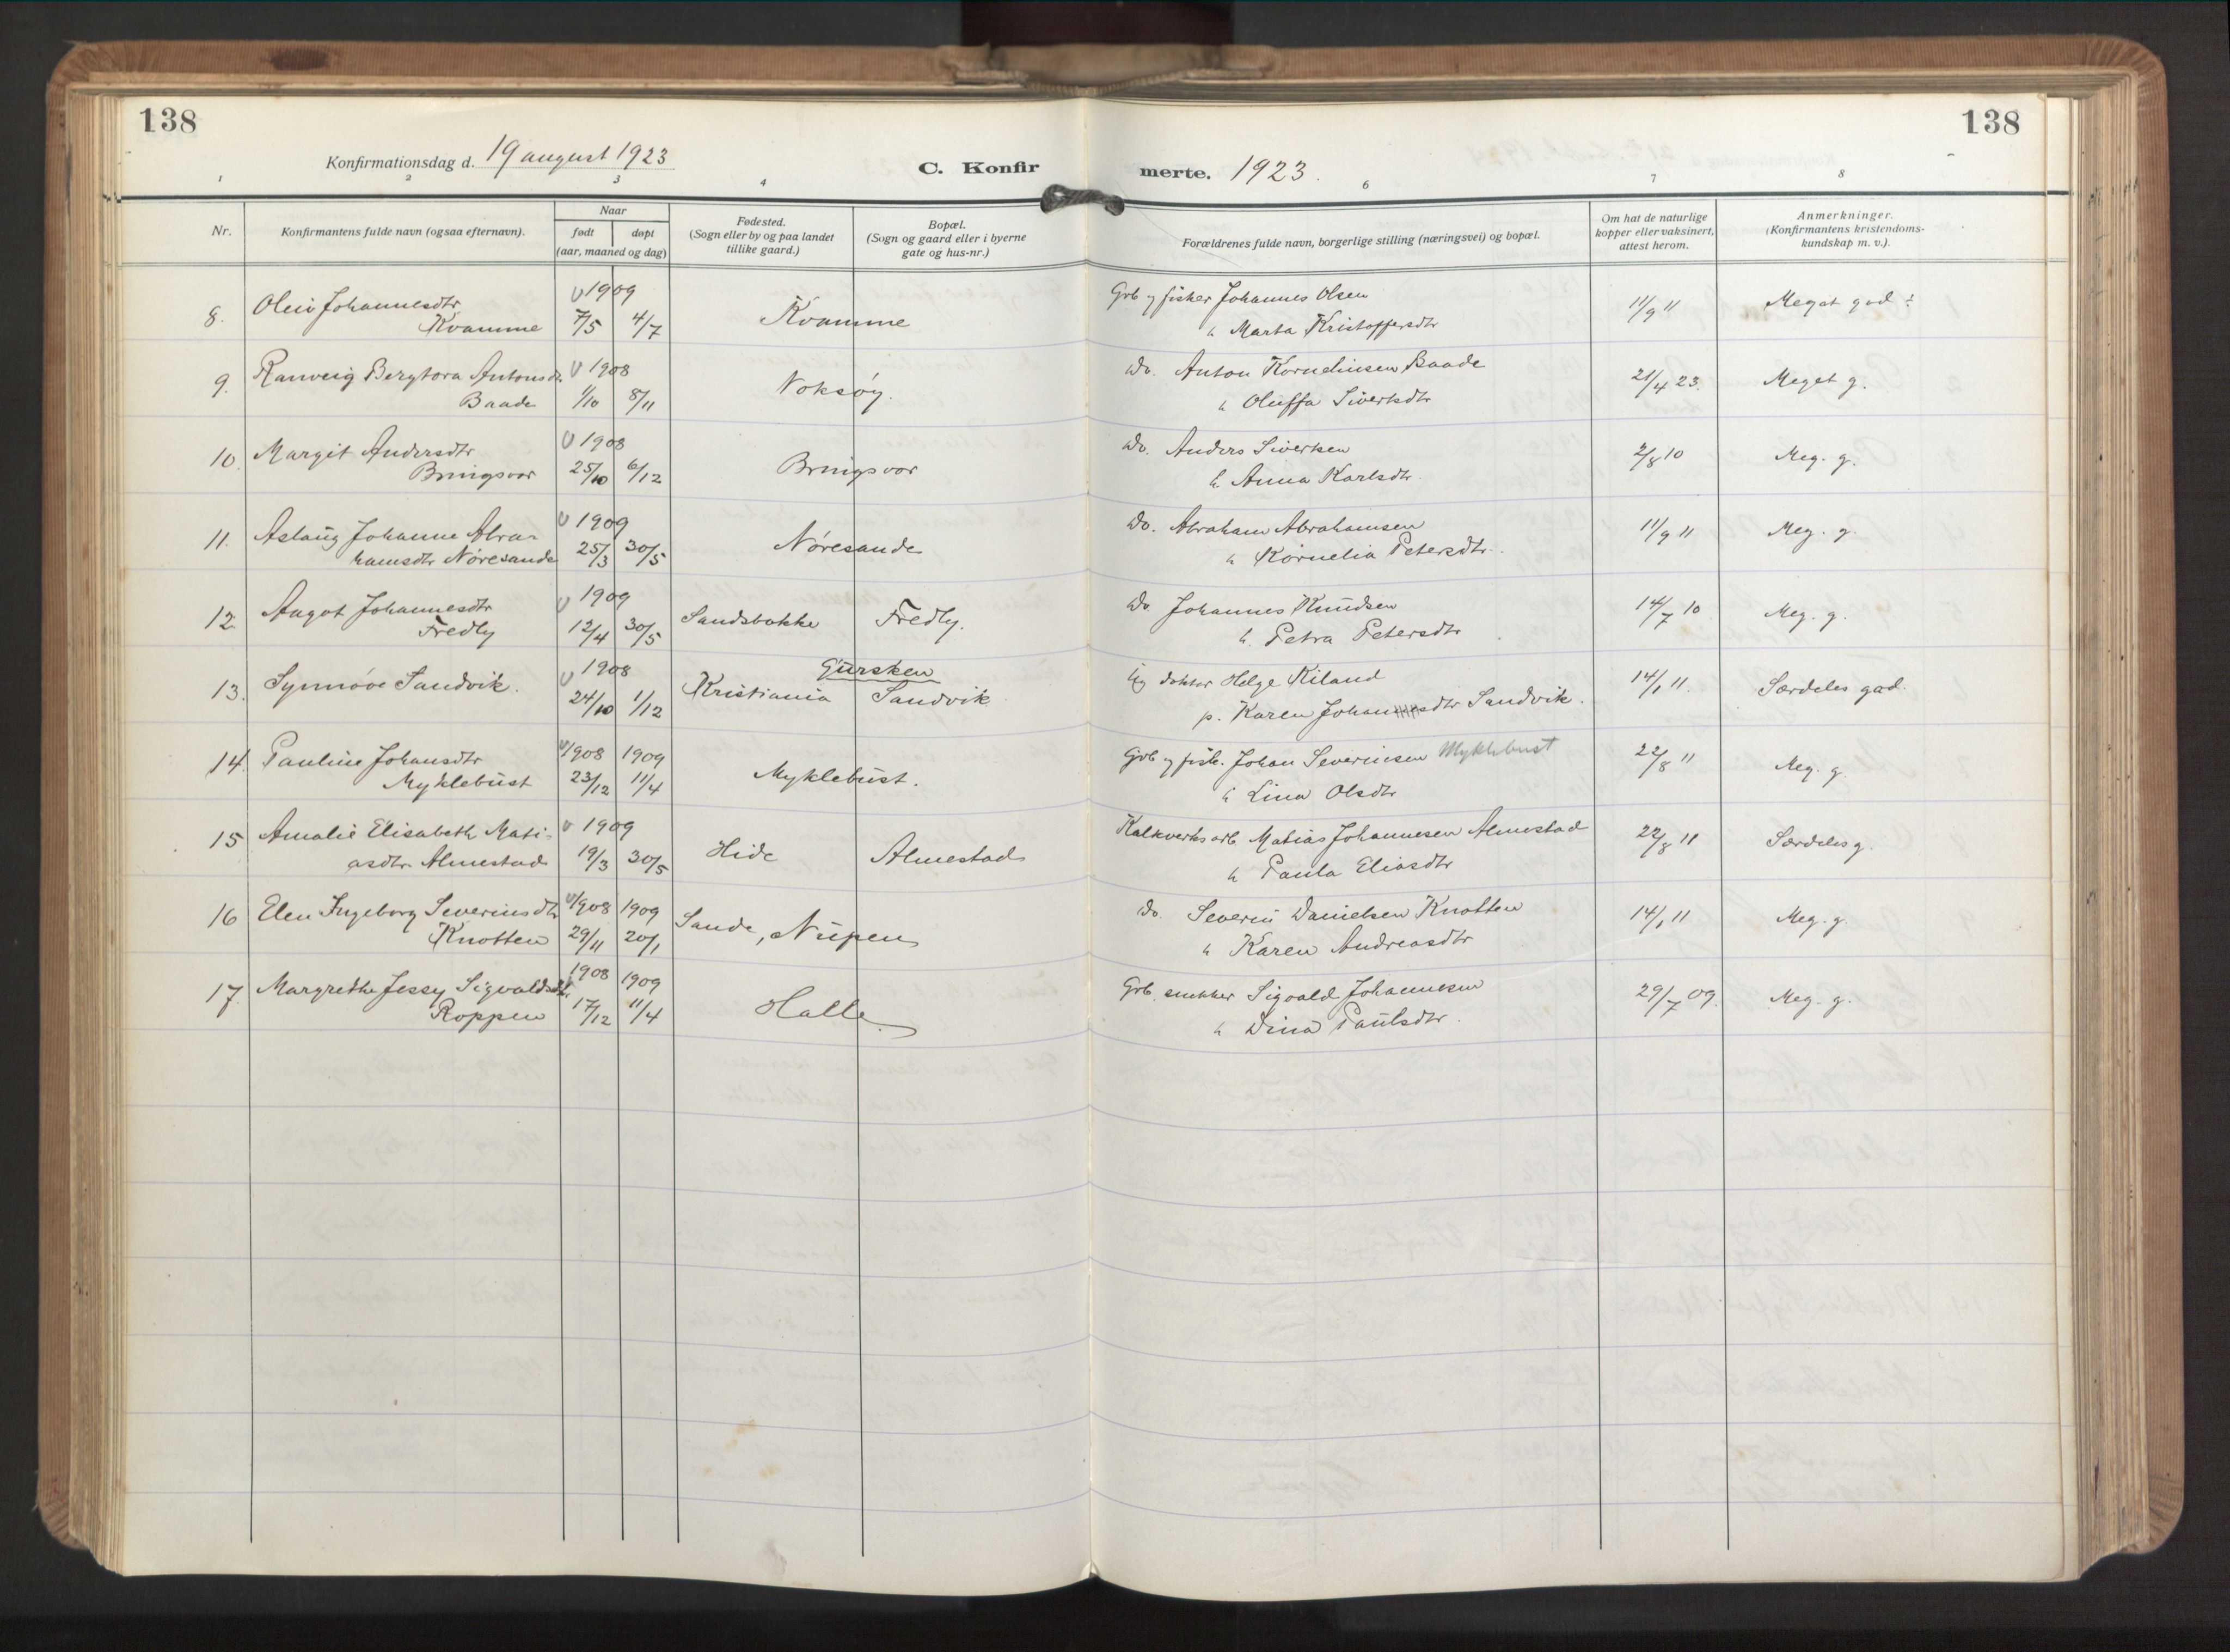 138
138
Konfirmationsdag d. 19 august 1923
C. Konfir
merte. 1923.
1 2 3 4 6 7 8
Nr.
Konfirmantens fulde navn (ogsaa efternavn).
Naar
født døpt
(aar, maaned og dag)
Fødested.
(Sogn eller by og paa landet
tillike gaard.)
Bopæl.
(Sogn og gaard eller i byerne
gate og hus-nr.)
Forældrenes fulde navn, borgerlige stilling (næringsvei) og bopæl.
Om hat de naturlige
kopper eller vaksinert,
attest herom.
Anmerkninger.
(Konfirmantens kristendoms-
kundskap m. v.).
8. Johannesdtr 1909 Grb og fisker Johannes Olsen 11/9 11 Meget god
Kvamme 7/5 4/7 Kvamme Marta Kristoffersdtr
9. Ranveig Bergtora Antonsdr. 1908 Do. Anton Korneliussen Baade 21/4 23. Meget g.
Baade 1/10 8/11 Voksøy. Oluffa Sivertsdtr
10. Margit Andersdtr 1908 Do. Anders Sivertsen 2/8 10 Meg. g.
Bringsvor 25/10 6/12 Bringsvor h. Anna Karlsdtr.
11. Aslaug Johanne Abra- 1909 Do. Abraham Abrahamsen 11/9 11 Meg. g.
hamsdtr Nøresande 25/3 30/5 Nøresande Kornelia Petersdtr.
12. Aagot Johannesdtr 1909 Do Johannes Knudsen 14/7 10 Meg. g.
Fredly 12/4 30/5 Sandsbakke Fredly. h. Petra Petersdtr
13. Synnøve Sandvik. 1908 Gursken Ug doktor Helge Kiland 14/1 11. Særdeles god.
24/10 1/12 Kristiania Sandvik p. Karen Johansdtr Sandvik.
14. Pauline Johansdtr 1908 1909 Grb og fisk. Johan Severinsen Myklebust 22/8 11 Meg. g.
Myklebust 23/12 11/4 Myklebust. Lina Olsdtr
15 Amalie Elisabeth Mati- 1909 Kalkverksarb. Matias Johannesen Almestad 22/8 11 Særdeles g.
asdtr. Almestad 19/3 30/5 Hide Almestad h Paula Eliasdtr
16 Elen Ingeborg Severinsdtr 1908 1909 Do. Severin Danielsen Knotten 14/1 11 Meg. g.
Knotten 29/11 20/1 Sande, Nupen Karen Andreasdtr
17. Margrethe Jessy Sigvaldsdtr. 1908 1909 Grb. snekker Sigvald Johannesen 29/7 09. Meg. g.
Koppen 17/12 11/4 Halle. Dina Paulsdtr.